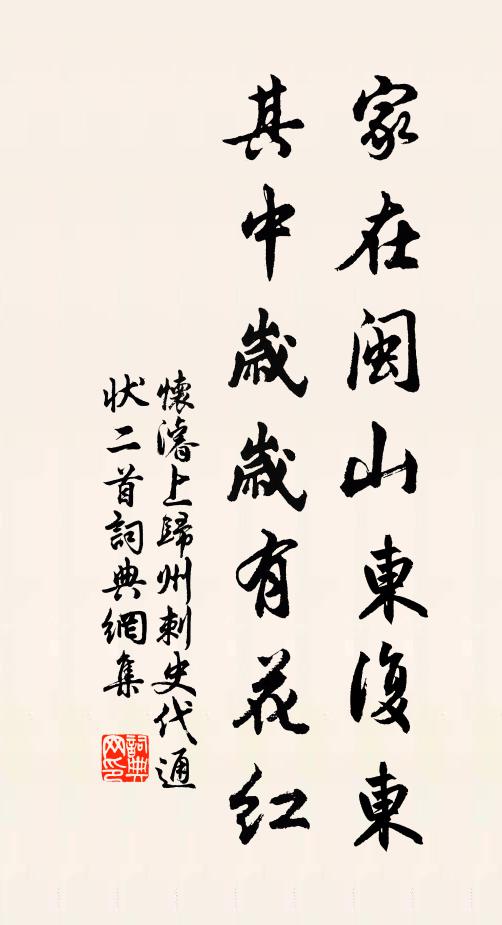 家在闽山東復東
其中歲歲有花红
懷濬上歸州刺史代通
状二首詞典網集
詞典
网印